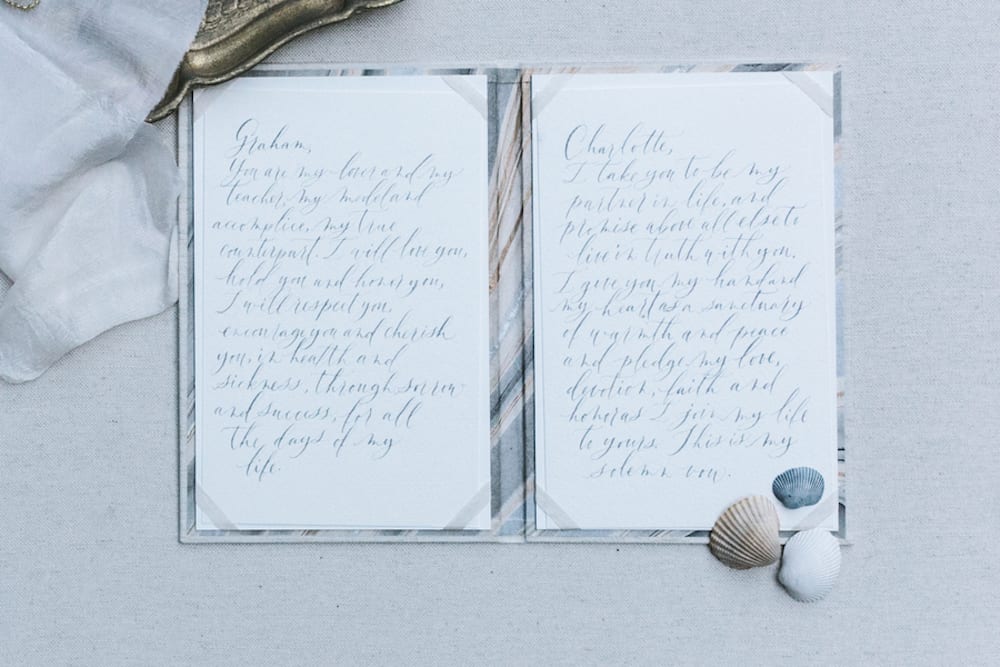 Graham,
You are my lover and my
teacher, my model and
accomplice, my true
counterpart. I will love you,
hold you and honor you,
I will respect you,
encourage you and cherish
you, in health and
sickness, through sorrow
and success, for all
the days of my
life.
Charlotte,
I take you to be my
partner in life, and
promise above all else to
live in truth with you.
I give you my hand and
my heart as a sanctuary
of warmth and peace
and pledge my love,
devotion, faith and
honor as I join my life
to yours. This is my
solemn vow.